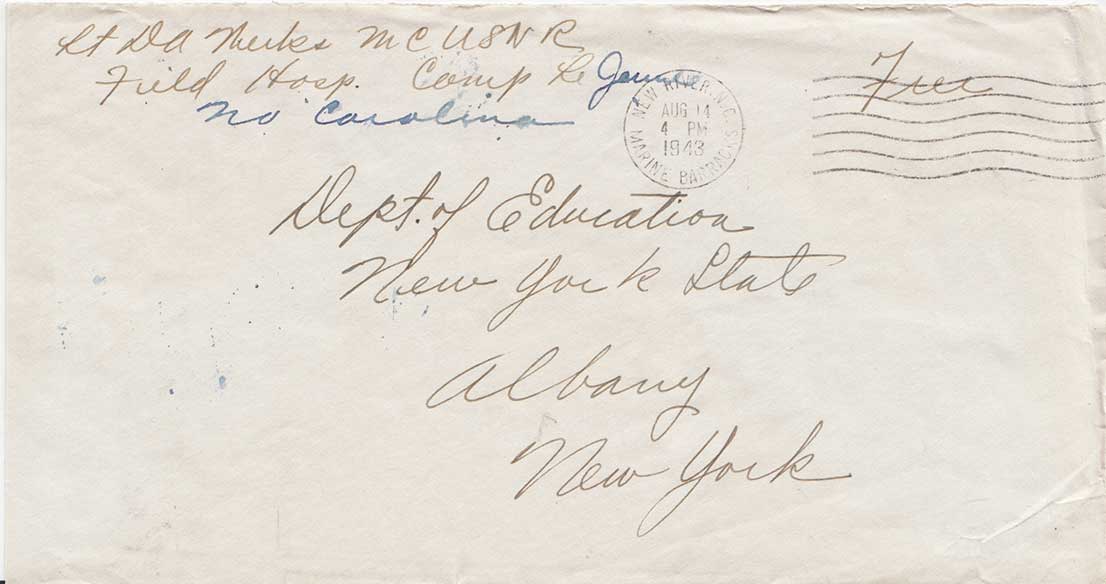 Lt D A MC USNR
Field Hosp. Camp Le Jeune
No Carolina
Free
NEW RIVER, N.C.
AUG 14
4 PM
1943
MARINE BARRACKS
Dept. of Education
New York State
Albany
New York